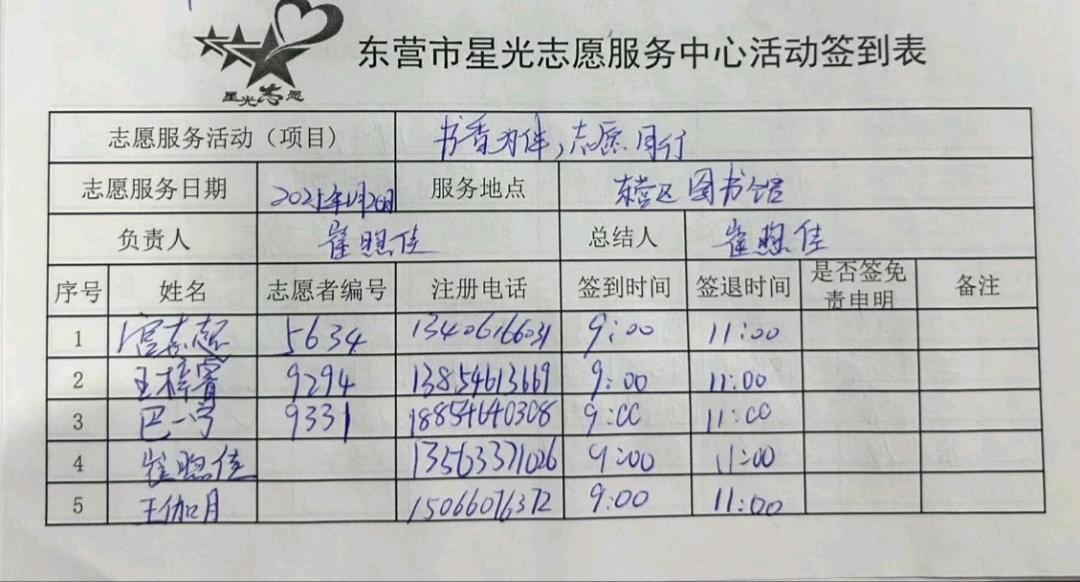 星光志愿
东营市星光志愿服务中心活动签到表
志愿服务活动（项目） 书香为伴，志愿同行
志愿服务日期 服务地点 东营区图书馆
负责人 崔煦佳 总结人 崔煦佳
序号 姓名 志愿者编号 注册电话 签到时间 签退时间 是否签免责申明 备注
1 5634 13406166031 9:00 11:00
2 王梓睿 9294 13854613669 9:00 11:00
3 巴一宁 9331 18854640308 9:00 11:00
4 崔煦佳 13563371026 9:00 11:00
5 王伽月 15066076372 9:00 11:00